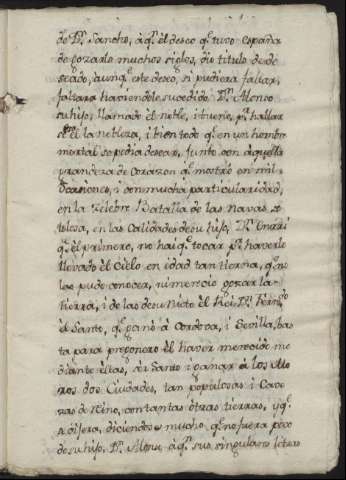 de Dn. Sancho, à qe. el deseo qe. tuvo España
de gozarlo muchos siglos, dio titulo de de
seado, aunqe. este deseo, si pudiera faltar,
faltara haviendole sucedido Dn. Alonso
su hijo, llamado el noble, i bueno, pr. hallar
se en el la nobleza, i bien todo qe. en un hombre
mortal se podia desear, junto con aquella
grandeza de corazon qe. mostrò en mil
ocasiones, i con mucha particularidad,
en la Zelebre Batalla de las Navas de
tolosa, en las Calidades de su hijo, Dn. Enrri
qe. el primero, no hai qe. tocar pr. haverle
llevado el Cielo en edad tan tierna, qe. ni
las pudo conocer, ni merecio gozar la
tierra, i de las de su Nieto el Rei Dn. Ferndo.
el Santo, qe. ganò a Cordova, i Sevilla, bas
ta para preponero el haver merecido me
diante ellas, ser Santo i ganar à los Mo
ros dos Ciudades, tan populosas i Cave
zas de Reino, con tantas òtras tierras, y qe.
se dijera, diciendo mucho qe. no fuera poco
de su hijo, Dn. Alonso, à qe. sus singulares letras